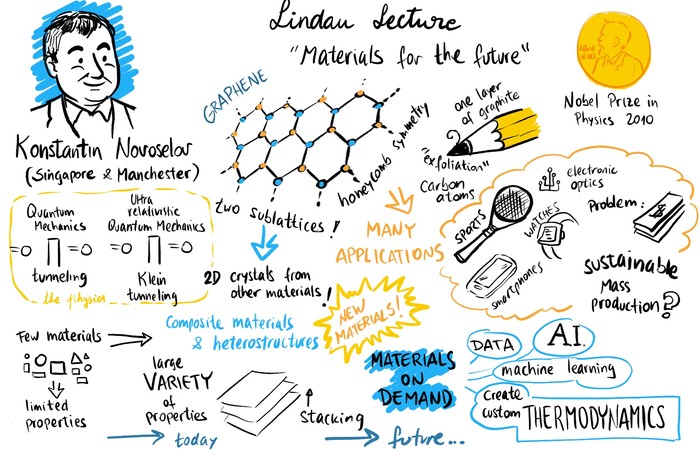 Lindau Lecture
"Materials for the future"
Konstantin Novoselov
(Singapore & Manchester)
GRAPHENE
honeycomb symmetry
two sublattices!
one layer
of graphite
"exfoliation"
carbon
atoms
Nobel Prize in
Physics 2010
Quantum
Mechanics
tunneling
Ultra
relativistic
Quantum Mechanics
Klein
tunneling
the physics
2D crystals from
other materials!
MANY
APPLICATIONS
SPORTS
WATCHES
smartphones
electronic
optics
Problem:
$
sustainable
Mass
production?
NEW
MATERIALS!
Composite materials
& heterostructures
Few materials
limited
properties
large
VARIETY
of
properties
stacking
today
future...
MATERIALS
ON
DEMAND
DATA
A.I.
machine learning
Create
custom
THERMODYNAMICS